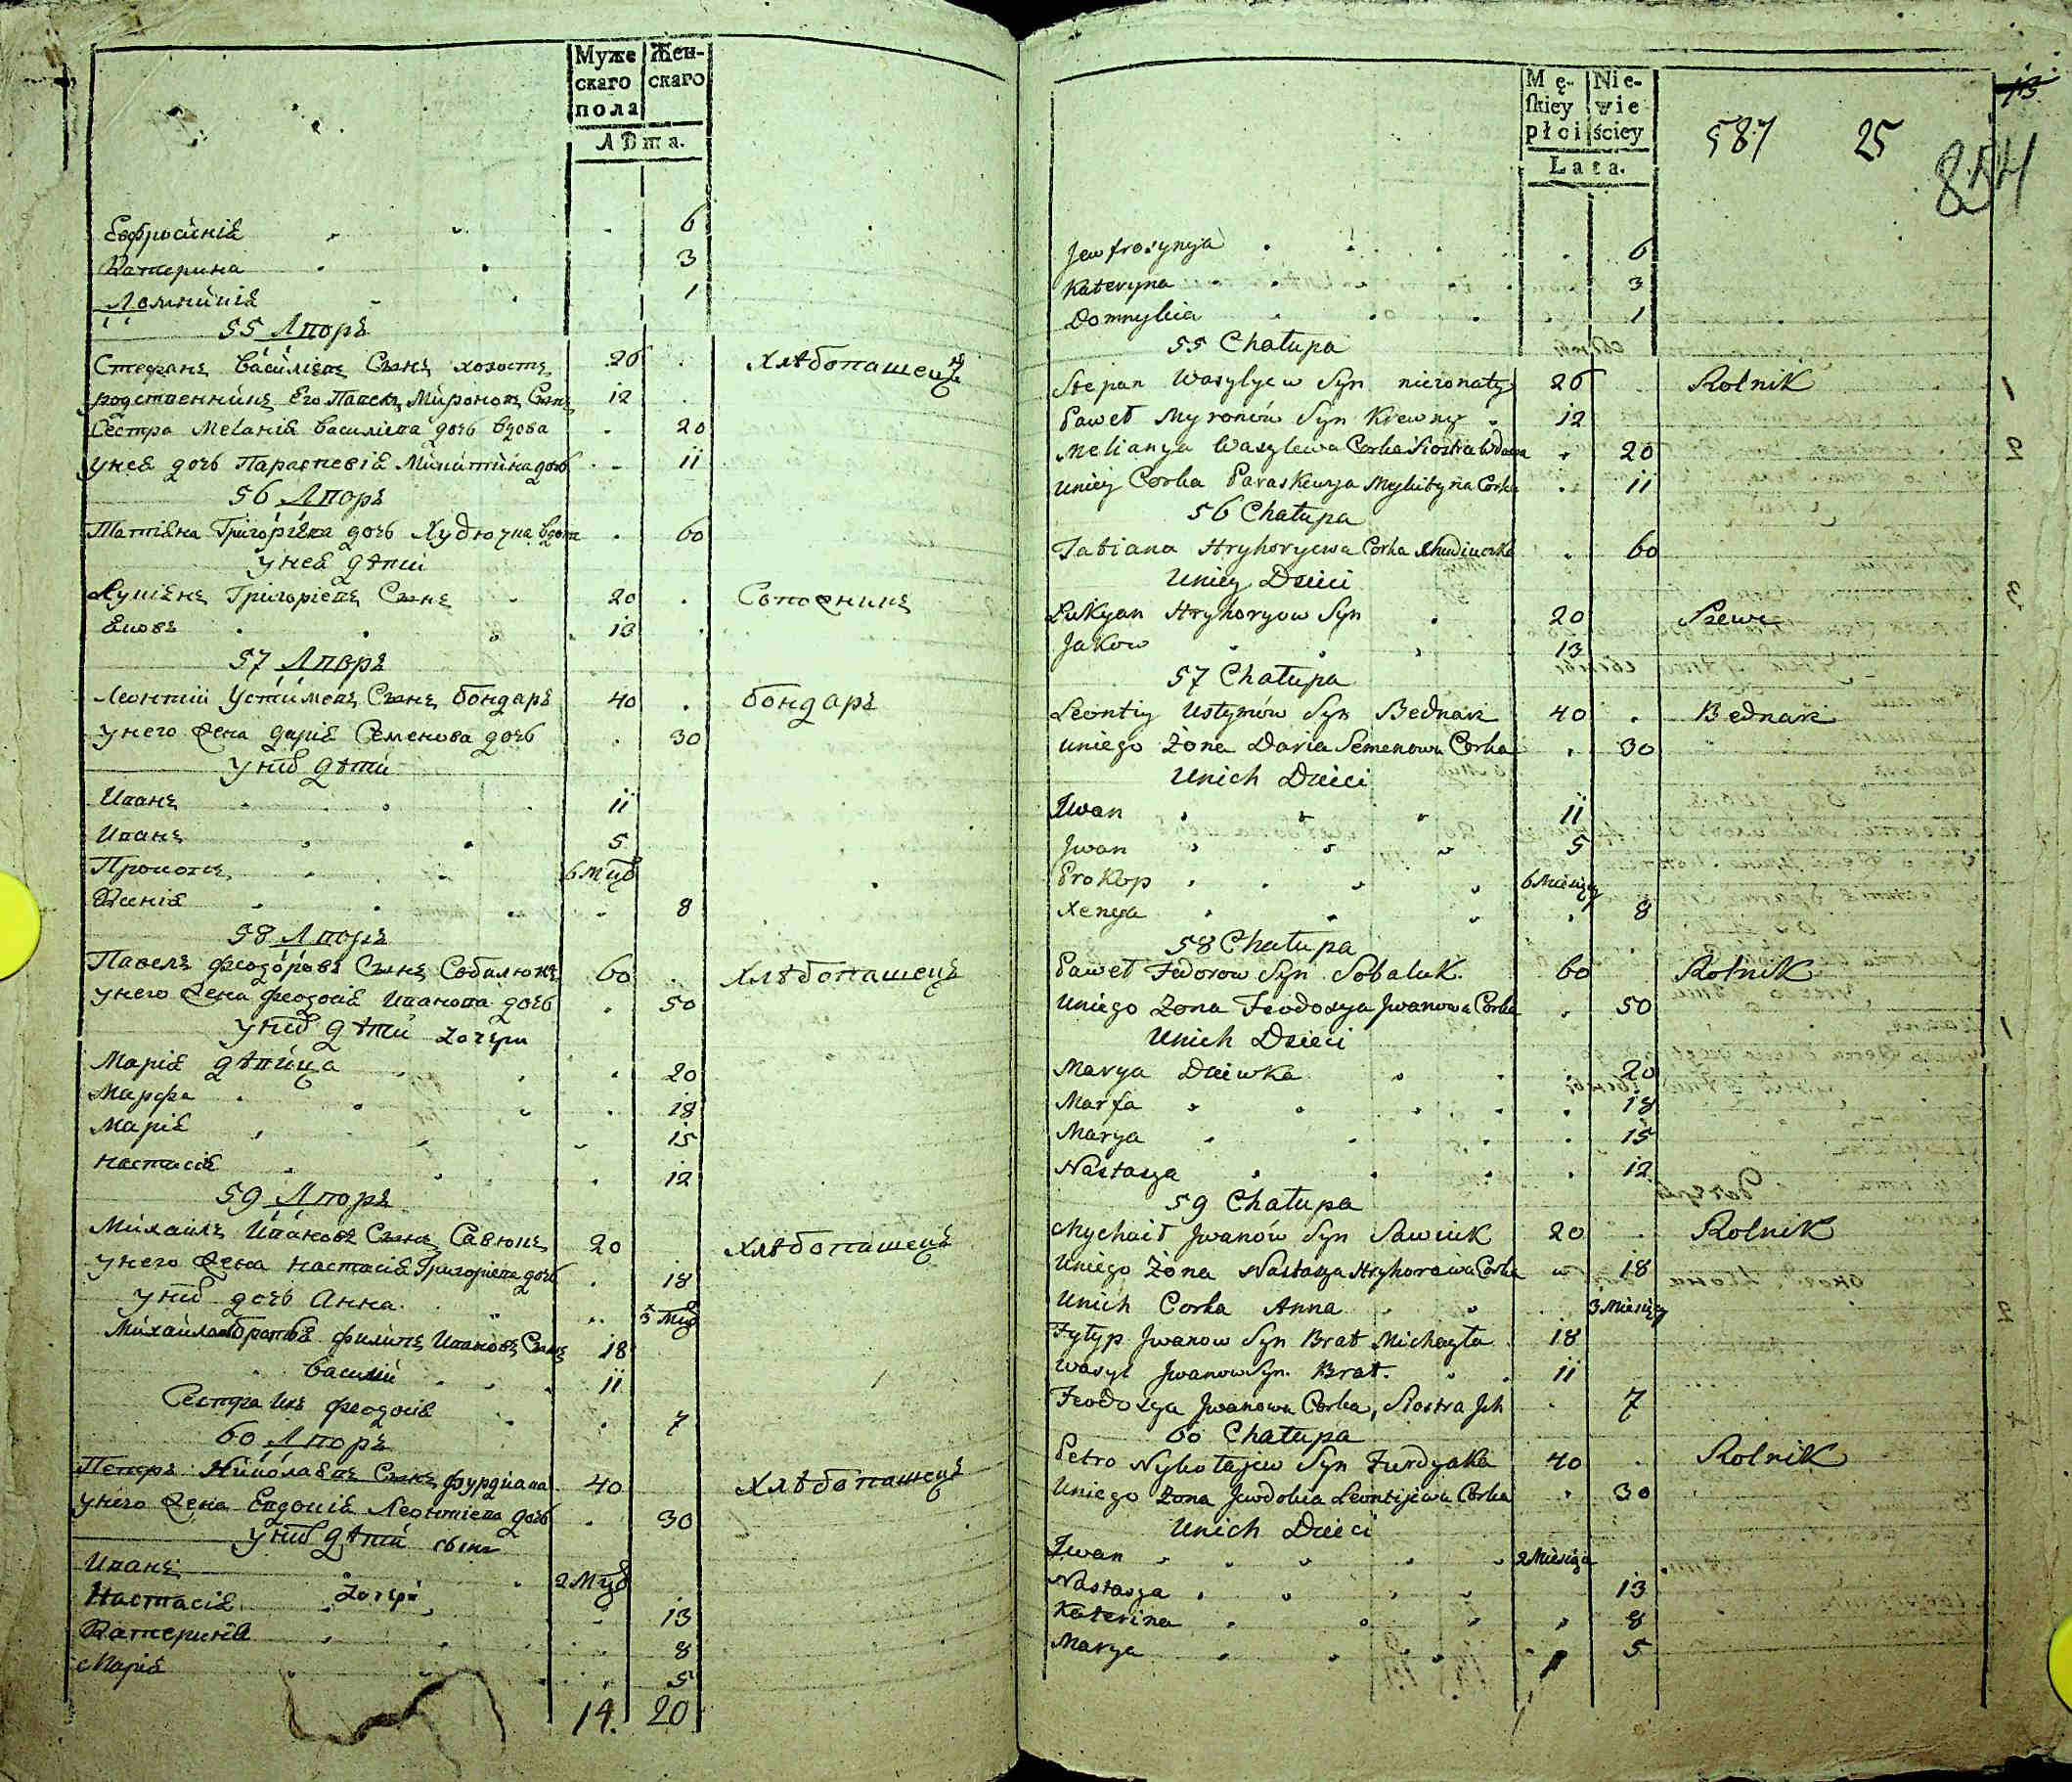 Муже
скаго
пола
Жен-
скаго
Лѣта.
Евфросинiя 6
Катерина 3
Домникiя 1
55 Дворъ
Стефанъ Василiевъ Сынъ холостъ 26 Хлѣбопашецъ
родственникъ Его Павелъ Мироновъ Сынъ 12
Сестра Меланiя Василiева дочь вдова 20
у нея дочь Параскевiя Микитина дочь 11
56 Дворъ
Татiяна Григорiева дочь Худючка вдова 60
у нея дѣти
Лукiянъ Григорiевъ Сынъ 20 Сапожникъ
Яковъ 13
57 Дворъ
Леонтiй Устимовъ Сынъ бондаръ 40 бондаръ
у него жена Дарiя Семенова дочь 30
у нихъ дѣти
Иванъ 11
Иванъ 5
Прокопъ 6 Мцъ
Ксенiя 8
58 Дворъ
Павелъ Феодоровъ Сынъ Собалюкъ 60 Хлѣбопашецъ
у него жена Феодосiя Иванова дочь 50
у нихъ дѣти дочери
Марiя дѣвица 20
Марфа 18
Марiя 15
Настасiя 12
59 Дворъ
Михаилъ Ивановъ Сынъ Савюкъ 20 Хлѣбопашецъ
у него жена Настасiя Григорiева дочь 18
у нихъ дочь Анна 3 Мцъ
Михаила братья Филипъ Ивановъ Сынъ 18
Василiй 11
Сестра ихъ Феодосiя 7
60 Дворъ
Петръ Николаевъ Сынъ Фурдiака 40 Хлѣбопашецъ
у него жена Евдокiя Леонтiева дочь 30
у нихъ дѣти сынъ
Иванъ 2 Мцъ
дочери
Настасiя 13
Катерина 8
Марiя 5
14. 20
Mę-
skiey
płci
Nie-
wie
ściey
Lata.
13
587 25
854
Jewfrosynya 6
Kateryna 3
Domnykia 1
55 Chałupa
Stepan Wasylyew Syn nieżonaty 26 Rolnik
Paweł Myronów Syn Krewny 12
Melianya Wasylewa Corka Siostra Wdowa 20
Uniey Corka Paraskewya Mykityna Corka 11
56 Chałupa
Tatiana Hryhoryewa Corka Khudiuczka 60
Uniey Dzieci
Łukyan Hryhoryow Syn 20 Szewc
Jakow 13
57 Chałupa
Leontiy Ustymów Syn Bednarz 40 Bednarz
uniego Żona Daria Semenowa Corka 30
Unich Dzieci
Iwan 11
Jwan 5
Prokop 6 Miesięcy
Xenya 8
58 Chałupa
Paweł Fedorow Syn Sobaluk 60 Rolnik
Uniego Żona Feodosya Jwanowa Corka 50
Unich Dzieci
Marya Dziewka 20
Marfa 18
Marya 15
Nastasya 12
59 Chałupa
Mychaił Jwanów Syn Sawiuk 20 Rolnik
Uniego Żona Nastasya Hryhorowa Corka 18
Unich Corka Anna 3 Miesięcy
Fyłyp Jwanow Syn Brat Michayła 18
Wasyl Jwanow Syn. Brat. 11
Feodosya Jwanowa Corka, Siostra Jch 7
60 Chałupa
Petro Nykołajew Syn Furdyaka 40 Rolnik
Uniego Żona Jewdokia Leontijewa Corka 30
Unich Dzieci
Iwan 2 Miesiąca
Nastasya 13
Katerina 8
Marya 5